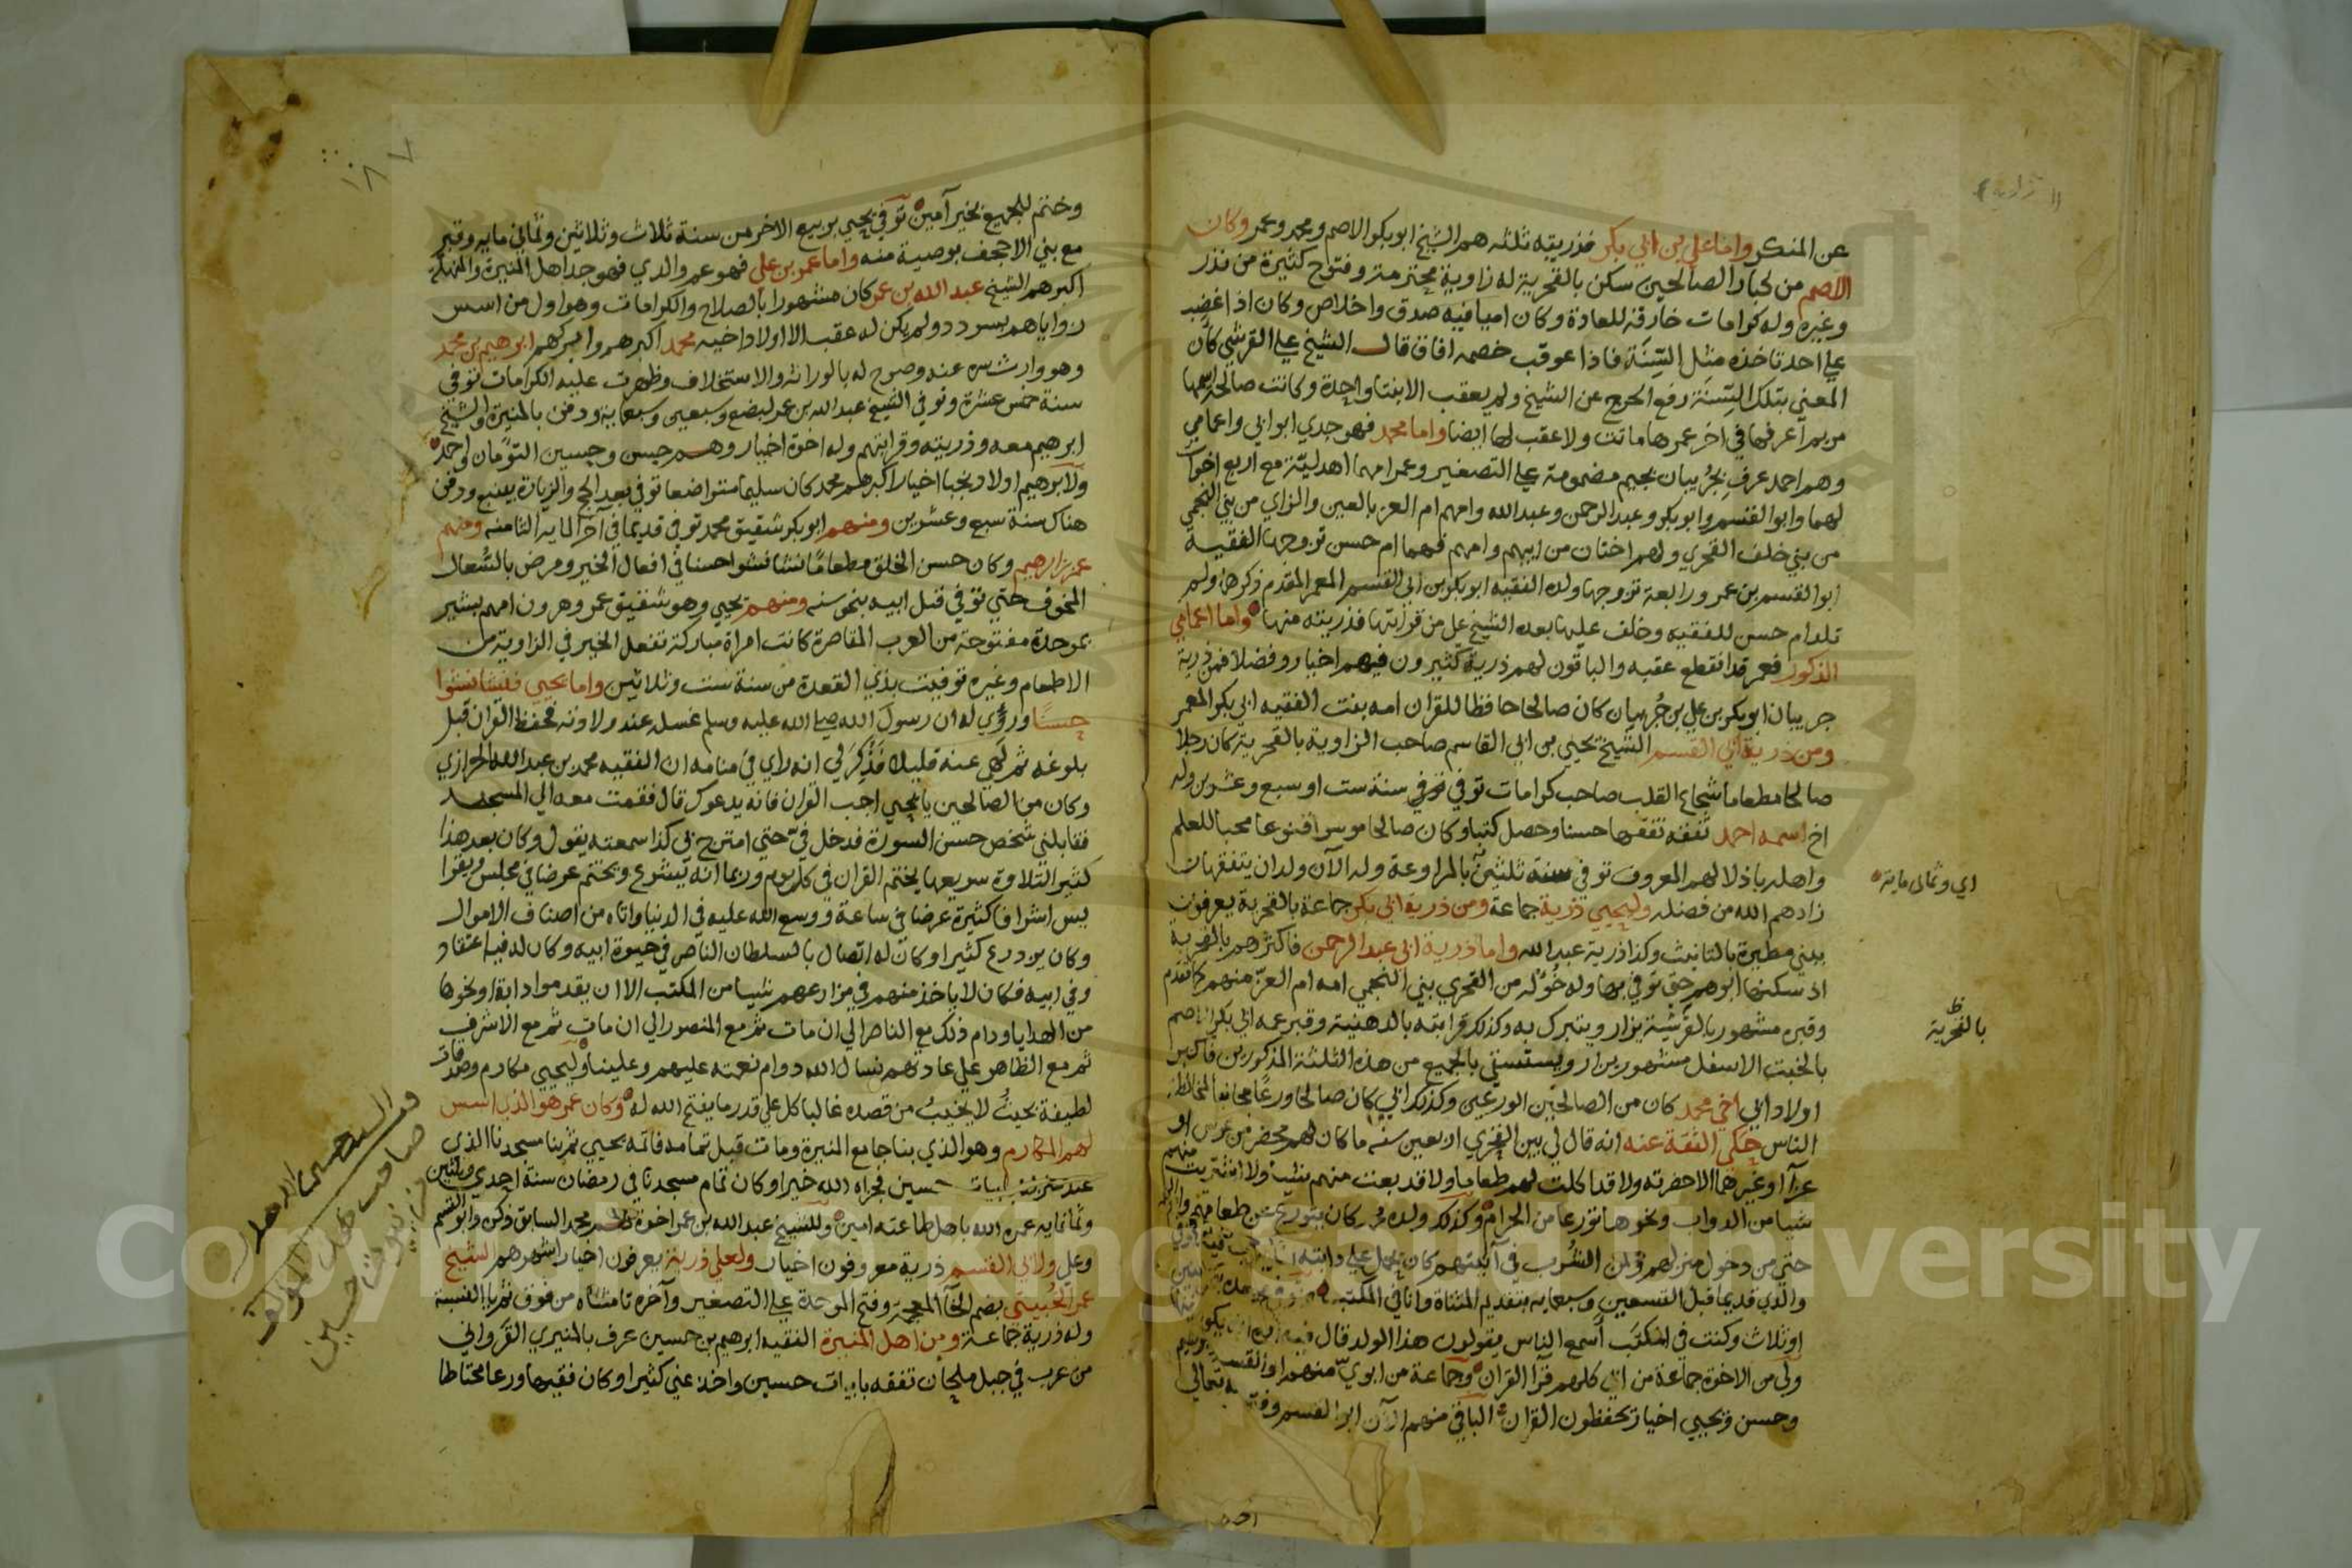 عن المنكر واما علي بن ابي بكر فذريته ثلثه هم الشيخ ابو بكر الاصم ومحمد وعمر وكان
الاصم من كبار الصالحين سكن بالقحرية له زاوية محترمة وفتوح كثيرة من نذر
وغيره وله كرامات خارقة للعادة وكان اميا فيه صدق واخلاص وكان اذا غضب
علي احد تاخذه مثل السنة فاذا عوقب خصمه افاق قال الشيخ علي القرشي كان
المعني بتلك السنة رفع الحرج عن الشيخ ولم يعقب الا بنتا واحدة وكانت صالحة اسمها
مريم اعرفها في اخر عمرها ماتت ولا عقب لها ايضا واما محمد فهو جدي ابو ابي واعمامي
وهم احمد عرف بجريبان بجيم مضمومة علي التصغير وعمر امهما اهدلية مع اربع اخوات
لهما وابو القسم وابو بكر وعبد الرحمن وعبد الله وامهم ام العز بالعين والزاي من بني النجمي
من بني خلف القحري ولهم اختان من ابيهم وامهم فهما ام حسن تزوجها الفقيه
ابو القسم بن عمر ورابعة تزوجها ولده الفقيه ابو بكر بن ابي القسم المعمر المقدم ذكرها ولم
تلد ام حسن للفقيه وخلف عليها بعده الشيخ علي من قرابتها فذريته منها واما اعمامي
الذكور فعمر قد انقطع عقبه والباقون لهم ذرية كثيرون فيهم اخيار وفضلا فمن ذرية
جريبان ابو بكر بن علي بن جريبان كان صالحا حافظا للقران امه بنت الفقيه ابي بكر المعمر
ومن ذرية ابي القسم الشيخ يحيي بن ابي القاسم صاحب الزاوية بالقحرية كان رجلا
صالحا مطعاما شجاع القلب صاحب كرامات توفي في سنة ست او سبع وعشرين وله
اخ اسمه احمد تفقه تفقها حسنا وحصل كتبا وكان صالحا موسرا قنوعا محبا للعلم
واهله باذلا لهم المعروف توفي سنة ثلثين بالمراوعة وله الآن ولدان يتفقهان
اي وثمان ماية
زادهم الله من فضله وليحيي ذرية جماعة ومن ذرية ابي بكر جماعة بالقحرية يعرفون
ببني مطيرة بالتانيث وكذا ذرية عبد الله واما ذرية ابي عبد الرحمن فاكثرهم بالقحرية
اذ سكنها ابوهم حتي توفي بها وله خؤلة من القحري بني النجمي امه ام العز منهم كما تقدم
وقبره مشهور بالقرشية يزار ويتبرك به وكذلك قرابته بالدهنية وقبر عمه ابي بكر الاصم
بالقحرية
بالخبت الاسفل مشهور يزار ويستسقي بالجميع من هذه الثلثة المذكورين فاكبر
اولاد ابي اخي محمد كان من الصالحين الورعين وكذلك ابي كان صالحا ورعا مجانبا لمخالطة
الناس حكي الثقة عنه انه قال لي بين القحري اربعين سنه ما كان لهم محضر من عرس او
عزآ او غيرهما الا حضرته ولا قد اكلت لهم طعاما ولا قد بعت منهم شيئا ولا اشتريت منهم
شيا من الدواب ونحوها تورعا من الحرام وكذلك ولده كان يتورع عن طعامهم
حتي من دخول منزلهم ومن الشرب في آنيتهم كان يحمل علي دابته
والدي قديما قبل التسعين وسبعمايه بتقديم المثناة وانا في المكتب
او ثلاث وكنت في المكتب اسمع الناس يقولون هذا الولد قال
ولي من الاخوة جماعة من ابي كلهم قرا القران وجماعة من ابوي منهم ابو القسم
وحسن ويحيي اخيار يحفظون القران الباقي منهم الآن ابو القسم وفقه الله تعالي
وختم للجميع بخير آمين توفي يحيي بربيع الاخر من سنة ثلاث وثلاثين وثماني مايه وقبر
مع بني الاجحف بوصية منه واما عمر بن علي فهو عم والدي فهو جد اهل المنيرة والمنهكة
اكبرهم الشيخ عبد الله بن عمر كان مشهورا بالصلاح والكرامات وهو اول من اسس
زواياهم بسردد ولم يكن له عقب الا اولاد اخيه محمد اكبرهم وابركهم ابرهيم بن محمد
وهو وارث سره عنه وصرح له بالوراثة والاستخلاف وظهرت عليه الكرامات توفي
سنة خمس عشرة وتوفي الشيخ عبد الله بن عمر لبضع وسبعين وسبعماية ودفن بالمنيرة والشيخ
ابرهيم معه وذريته وقرابتهم وله اخوة اخيار وهم حسن وحسين التؤمان واحمد
ولابرهيم اولاد نجبا اخيار اكبرهم محمد كان سليما متواضعا توفي بعد الحج والزيارة بينبع ودفن
هناك سنة سبع وعشرين ومنهم ابو بكر شقيق محمد توفي قديما في آخر المايه الثامنه ومنهم
عمر بن ابرهيم وكان حسن الخلق مطعاما نشا نشوا حسنا في افعال الخير ومرض بالسعال
المخوف حتي توفي قبل ابيه بنحو سنه ومنهم يحيي وهو شقيق عمر وهرون امهم بشير
بموحدة مفتوحة من العرب المقاصرة كانت امراة مباركة تفعل الخير في الزاوية من
الاطعام وغيره توفيت بذي القعدة من سنة ست وثلاثين واما يحيي فنشا نشوا
حسنا ورؤي له ان رسول الله صلي الله عليه وسلم غسله عند ولادته فحفظ القران قبل
بلوغه ثم لهي عنه قليلا فذكر لي انه راي في منامه ان الفقيه محمد بن عبد الله الحرازي
وكان من الصالحين يا يحيي اجب القران فانه يدعوك قال فقمت معه الي المسجد
فقابلني شخص حسن الصورة فدخل في حتي امتزج بي كذا سمعته يقول وكان بعد هذا
كثير التلاوة سريعها يختم القران في كل يوم وربما انه يشرع ويختم عرضا في مجلس ويقرا
يس اشرافا كثيرة عرضا في ساعة ووسع الله عليه في الدنيا واتاه من اصناف الاموال
وكان يزدرع كثيرا وكان له اتصال بالسلطان الناصر في حيوة ابيه وكان له فيه اعتقاد
وفي ابيه فكان لا ياخذ منهم في مزارعهم شيا من المكتب الا ان يقدموا دابة او نحوها
من الهدايا ودام ذلك مع الناصر الي ان مات ثم مع المنصور الي ان مات ثم مع الاشرف
ثم مع الظاهر علي عادتهم نسال الله دوام نعمته عليهم وعلينا وليحيي مكارم وصدقات
لطيفة بحيث لا يخيب من قصده غالبا كل علي قدر ما يفتح الله له وكان عمر هو الذي اسس
لهم المكارم وهو الذي بنا جامع المنيرة ومات قبل تمامه فاتمه يحيي ثم بنا مسجدنا الذي
عند ابيات حسين فجزاه الله خيرا وكان تمام مسجدنا في رمضان سنة احدي وثلثين
وثمانمايه عمره الله باهل طاعته امين وللشيخ عبد الله بن عمر اخوة هم محمد السابق ذكره وابو القسم
وعلي ولابي القسم ذرية معروفون اخيار ولعلي ذرية يعرفون اخيار اشهرهم الشيخ
عمر الخبيتي بضم الخآ المعجمة وفتح الموحدة علي التصغير وآخره تا مثناه من فوق ثم يا النسبة
وله ذرية جماعة ومن اهل المنيرة الفقيه ابرهيم بن حسين عرف بالمنيري القرواني
من عرب في جبل ملحان تفقه بابيات حسين واخذ عني كثيرا وكان فقيها ورعا محتاطا